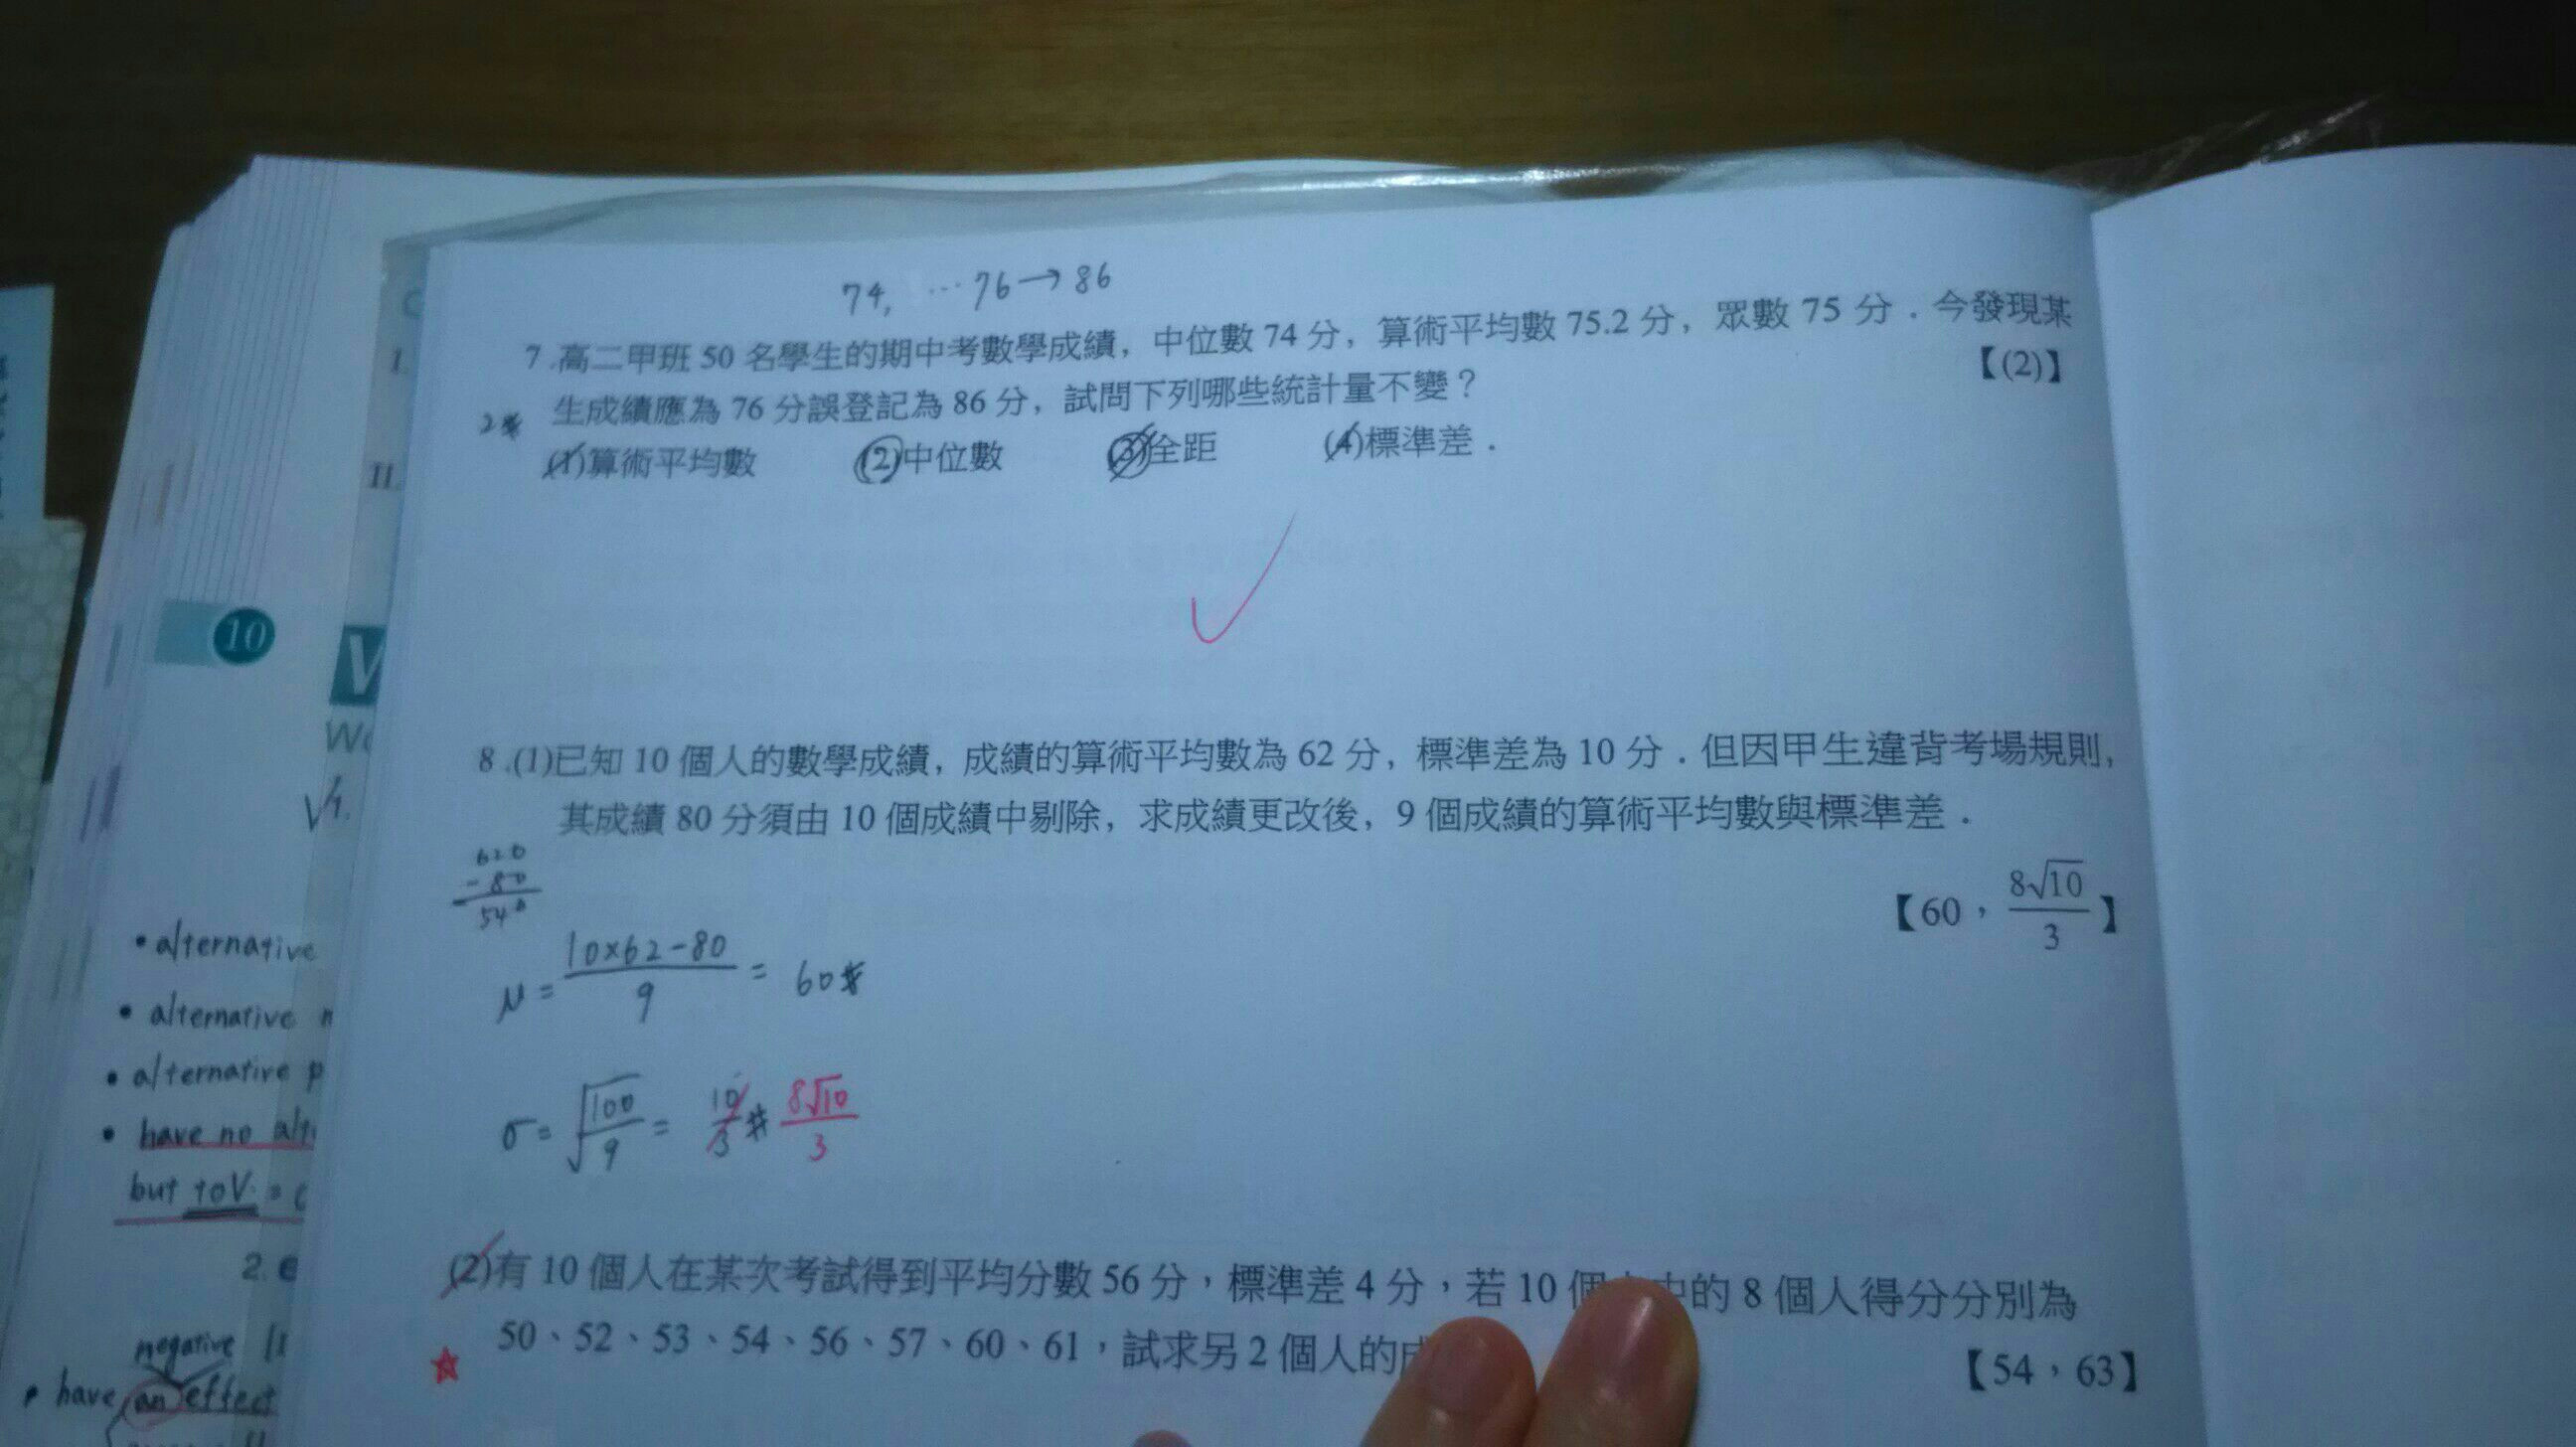 74, … 76→86
7.高二甲班50名學生的期中考數學成績，中位數74分，算術平均數75.2分，眾數75分．今發現某
生成績應為76分誤登記為86分，試問下列哪些統計量不變？
【(2)】
2#
(1)算術平均數 (2)中位數 (3)全距 (4)標準差．
8.(1)已知10個人的數學成績，成績的算術平均數為62分，標準差為10分．但因甲生違背考場規則，
其成績80分須由10個成績中剔除，求成績更改後，9個成績的算術平均數與標準差．
【60，8√10/3】
620
-80
540
μ= 10×62-80/9 = 60#
σ= √100/9 = 10/3# 8√10/3
(2)有10個人在某次考試得到平均分數56分，標準差4分，若10個 中的8個人得分分別為
50、52、53、54、56、57、60、61，試求另2個人的
【54，63】
I.
II.
10
V
√1.
•alternative
•alternative
•alternative p
•have no
but toV.=
2. e
negative
•have an effect